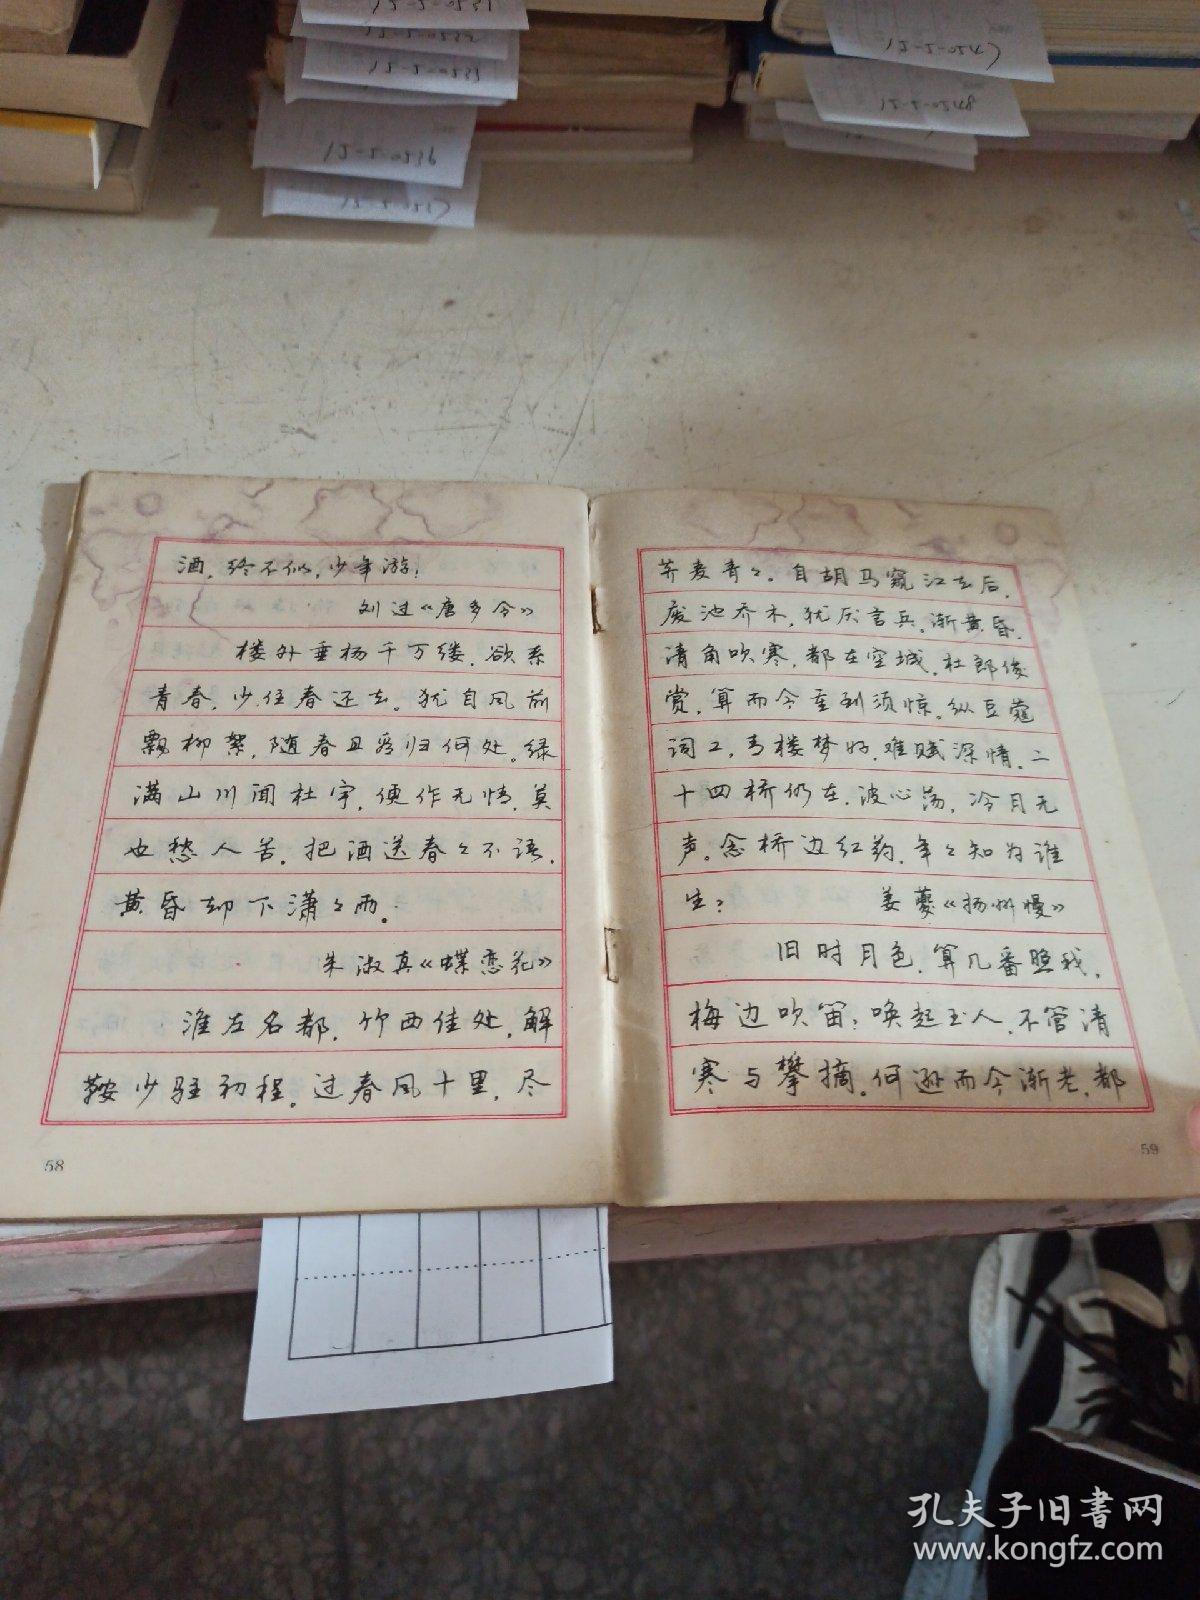 15-2-0531
15-2-0533
15-2-0536
15-2-0548
酒，终不似，少年游！
刘过《唐多令》
楼外垂杨千万缕，欲系
青春，少住春还去。犹自风前
飘柳絮，随春且看归何处。绿
满山川闻杜宇，便作无情，莫
也愁人苦。把酒送春々不语，
黄昏却下潇々雨。
朱淑真《蝶恋花》
淮左名都，竹西佳处，解
鞍少驻初程。过春风十里，尽
58
荠麦青々。自胡马窥江去后，
废池乔木，犹厌言兵。渐黄昏，
清角吹寒，都在空城。杜郎俊
赏，算而今重到须惊。纵豆蔻
词工，青楼梦好，难赋深情。二
十四桥仍在，波心荡，冷月无
声。念桥边红药，年々知为谁
生？ 姜夔《扬州慢》
旧时月色，算几番照我，
梅边吹笛？唤起玉人，不管清
寒与攀摘。何逊而今渐老，都
59
孔夫子旧书网
www.kongfz.com